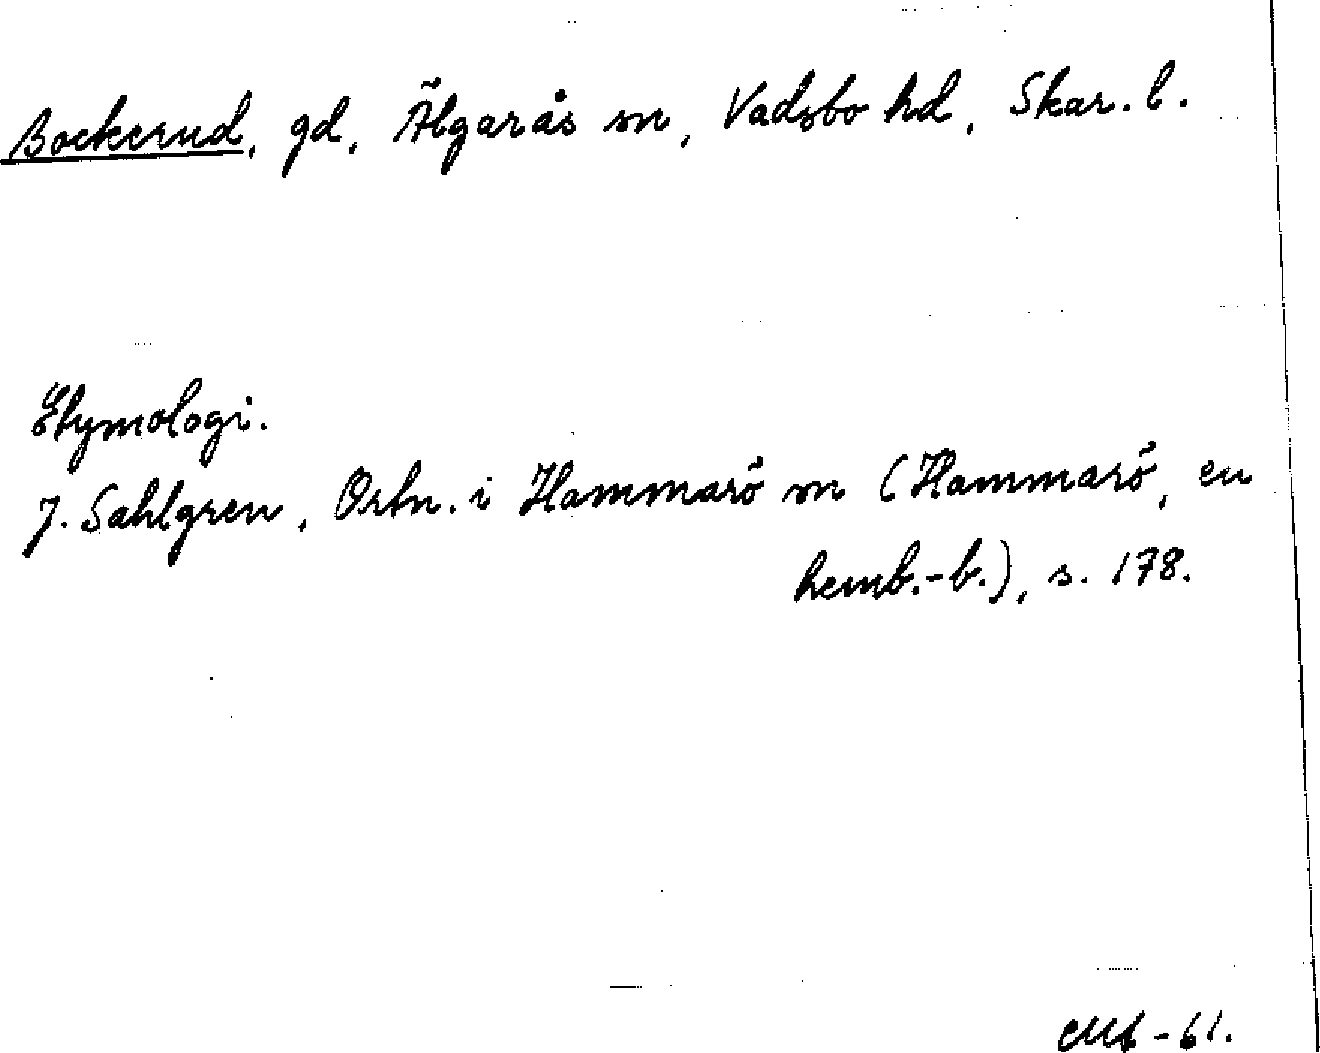 Bockerud, gd, Älgarås sn, Vadsbo hd, Skar. l.
Etymologi.
J. Sahlgren, Ortn. i Hammarö sn (Hammarö, en
hemb.-b.), s. 178.
-61.